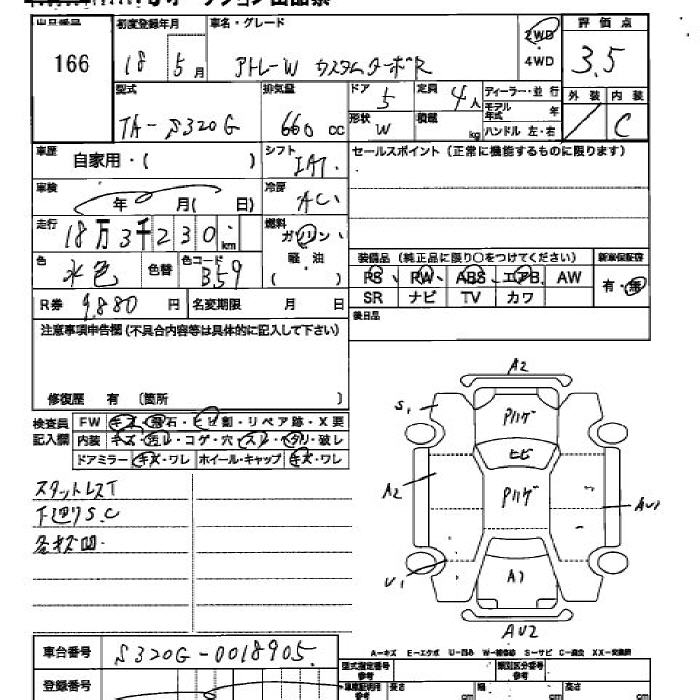 出品番号 初度登録年月 車名・グレード 2WD 評価点
166 18 5月 アトレーW カスタムターボR 4WD 3.5
型式 排気量 ドア 5 定員 4人 ディーラー・並行 外装 内装
モデル年式 年
TA-S320G 660cc 形状 W 積載 kg ハンドル 左・右 C
車歴 自家用・( ) シフト IAT セールスポイント(正常に機能するものに限ります)
車検 年 月( 日) 冷房 AC
走行 18万3千230km 燃料 ガソリン
軽・油
( )
色 水色 色替 色コード B59
装備品(純正品に限り○をつけてください) 新車保証書
PS RW ABS エアB AW 有・無
SR ナビ TV カワ
R券 9,880円 名変期限 月 日
後日品
注意事項申告欄(不具合内容等は具体的に記入して下さい)
修復歴 有 〔箇所 〕
検査員記入欄 FW キズ・飛石・ヒビ割・リペア跡・X要
内装 キズ・汚レ・コゲ・穴・スレ・タリ・破レ
ドアミラー キズ・ワレ ホイール・キャップ キズ・ワレ
スタットレスT
下廻りS.C
各キズ凹
A2
S1
ハゲ
ヒビ
A2
ハゲ
AU1
U1
A1
AU2
車台番号 S320G-0018905
A-キズ E-エクボ U-凹み W-補修跡 S-サビ C-腐食 XX-交換跡
型式指定番号参考 類別区分番号参考
登録番号 車庫証明用参考 長さ cm 幅 cm 高さ cm